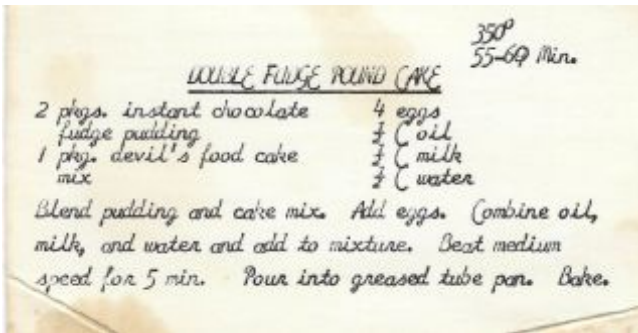 350°
55-60 Min.
DOUBLE FUDGE POUND CAKE
2 pkgs. instant chocolate 4 eggs
fudge pudding C oil
1 pkg. devil's food cake C milk
mix C water
Blend pudding and cake mix. Add eggs. Combine oil,
milk, and water and add to mixture. Beat medium
speed for 5 min. Pour into greased tube pan. Bake.